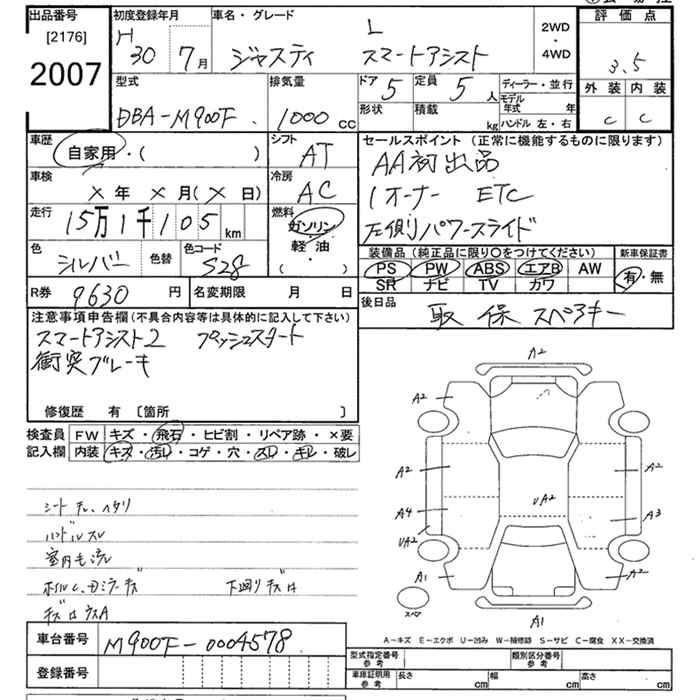 出品番号
[2176]
2007
初度登録年月
H 30年 7月
車名・グレード
ジャスティ L スマートアシスト
2WD
・
4WD
評価点
3.5
外装 内装
C C
型式
DBA-M900F
排気量
1000 cc
ドア 5
定員 5 人
形状
積載 kg
ディーラー・並行
モデル年式 年
ハンドル 左・右
車歴
自家用・( )
シフト
AT
車検
× 年 × 月 (× 日)
冷房
AC
走行
15万1千105 km
燃料
ガソリン
軽油
( )
色
シルバー
色替
色コード
S28
R券 9630 円
名変期限 月 日
セールスポイント(正常に機能するものに限ります)
AA初出品
1オーナー ETC
左側パワースライド
装備品(純正品に限り○をつけてください)
PS PW ABS エアB AW
SR ナビ TV カワ
新車保証書
有・無
後日品
取 保 スペアキー
注意事項申告欄(不具合内容等は具体的に記入して下さい)
スマートアシスト2 プッシュスタート
衝突ブレーキ
修復歴 有 〔箇所 〕
検査員記入欄
FW キズ・飛石・ヒビ割・リペア跡・×要
内装 キズ・汚レ・コゲ・穴・スレ・キレ・破レ
シート ヘタリ
ハンドルスレ
室内モ汚レ
下廻りキズ
車台番号
M900F-0004578
登録番号
A2
A2
A2
A2
A2
A4
A3
UA2
UA2
A1
A2
A1
スペア
A-キズ E-エクボ U-凹み W-補修跡 S-サビ C-腐食 XX-交換済
型式指定番号
参考
類別区分番号
参考
車庫証明用
参考
長さ cm 幅 cm 高さ cm